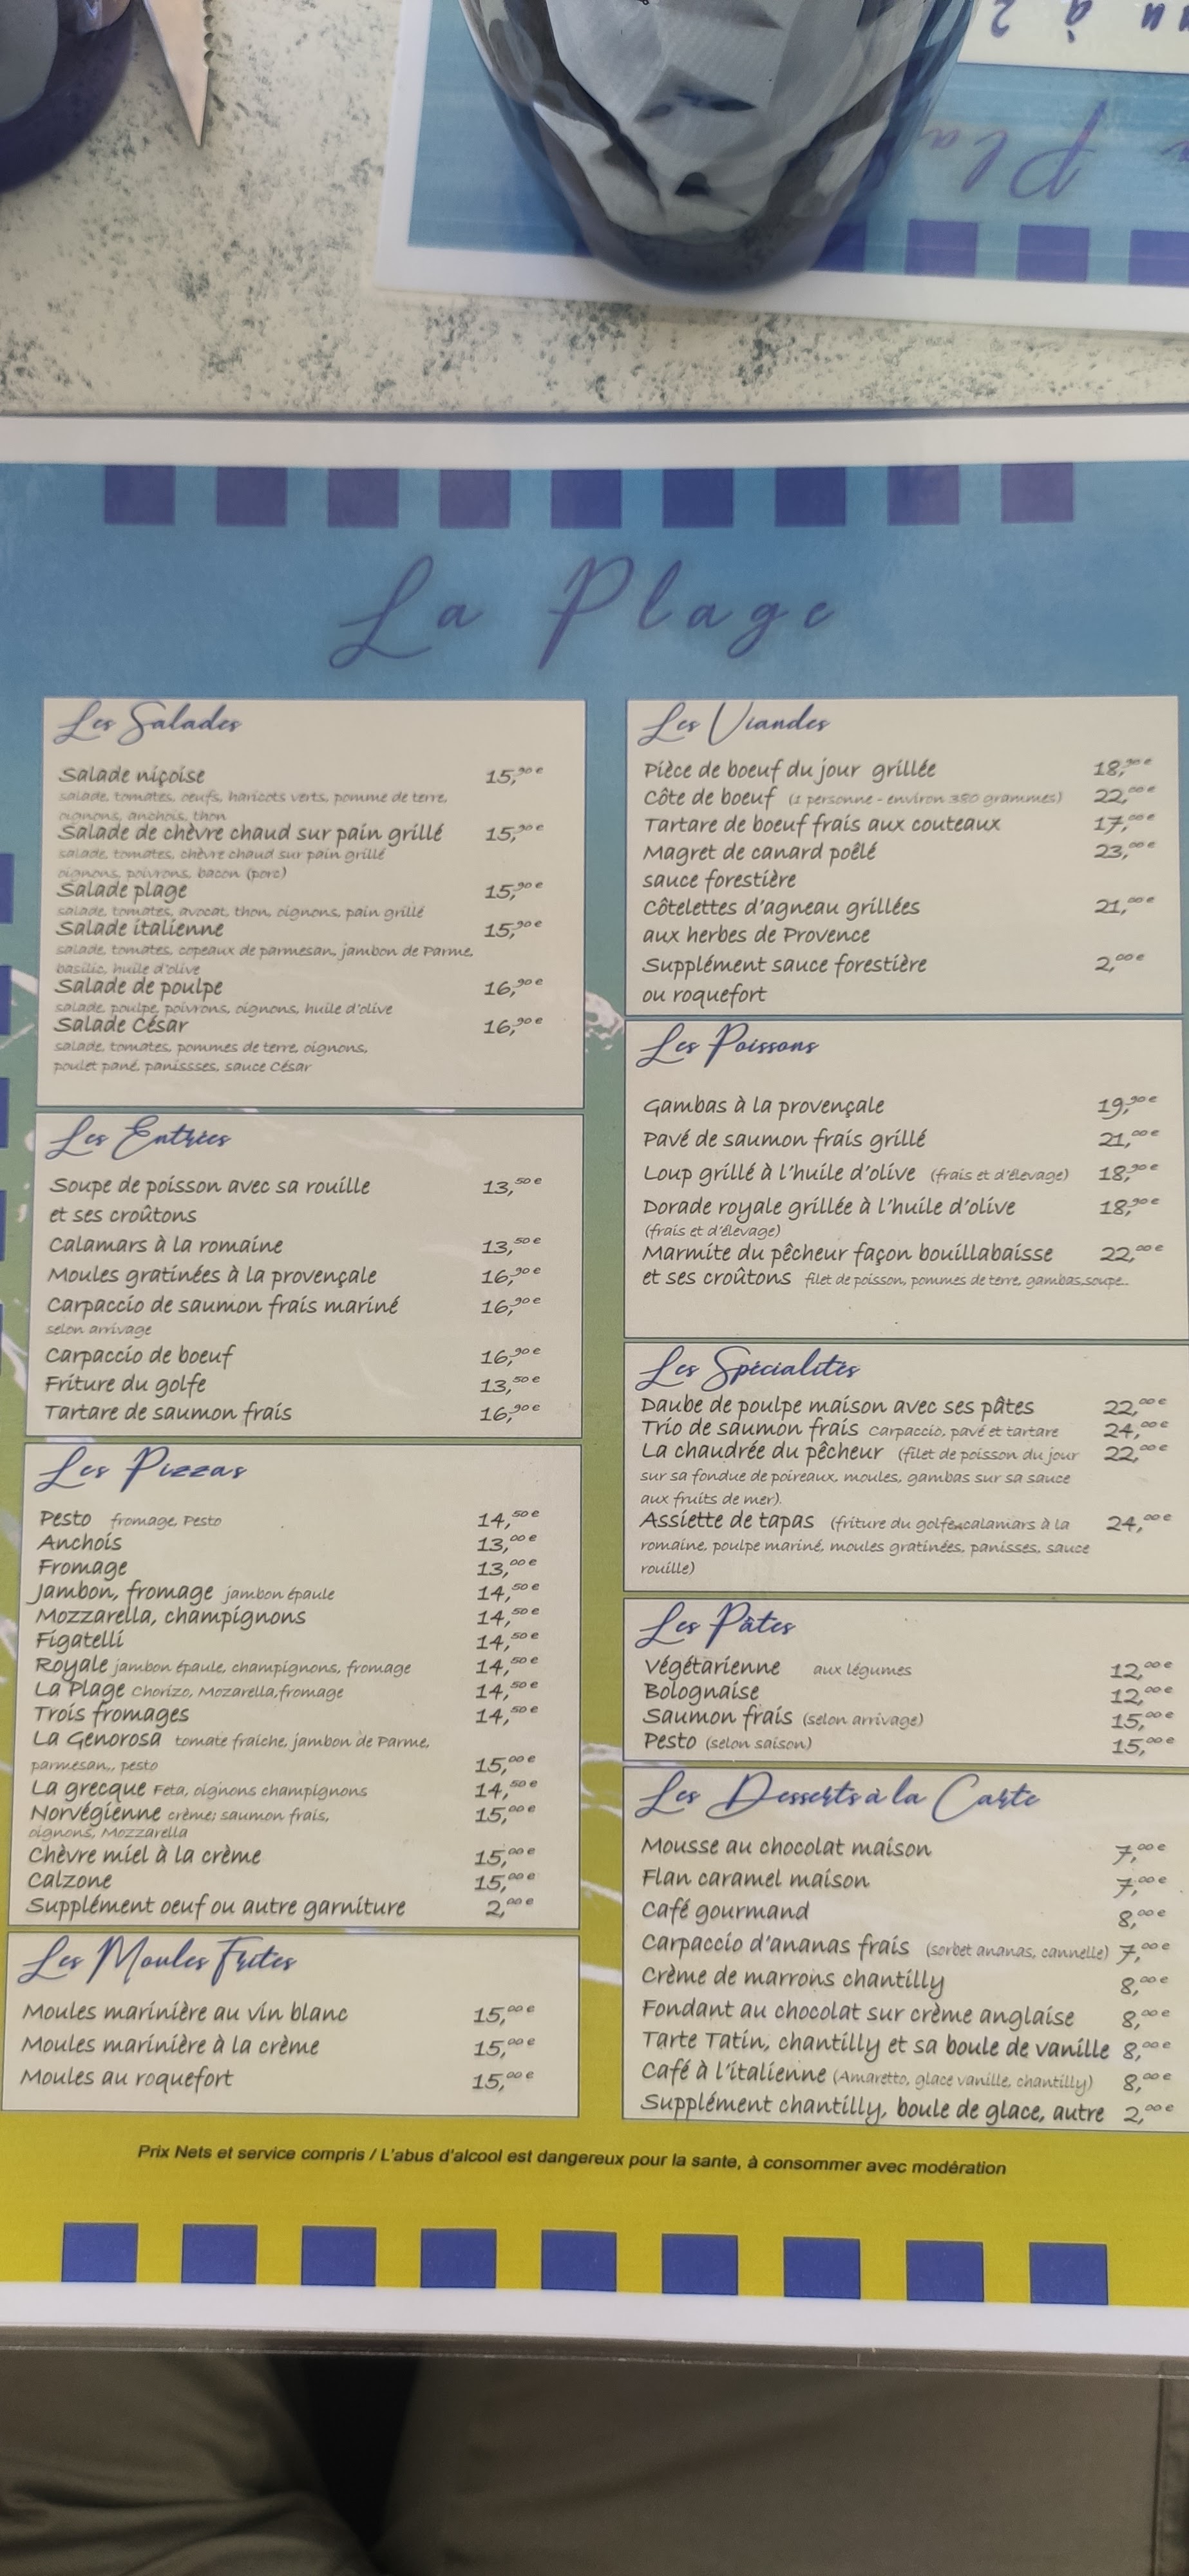 La Plage
Les Salades
Salade niçoise 15,90 e
salade, tomates, oeufs, haricots verts, pomme de terre,
oignons, anchois, thon
Salade de chèvre chaud sur pain grillé 15,90 e
salade, tomates, chèvre chaud sur pain grillé
oignons, poivrons, bacon (porc)
Salade plage 15,90 e
salade, tomates, avocat, thon, oignons, pain grillé
Salade italienne 15,90 e
salade, tomates, copeaux de parmesan, jambon de Parme,
basilic, huile d'olive
Salade de poulpe 16,90 e
salade, poulpe, poivrons, oignons, huile d'olive
Salade César 16,90 e
salade, tomates, pommes de terre, oignons,
poulet pané, panissses, sauce César
Les Entrées
Soupe de poisson avec sa rouille 13,50 e
et ses croûtons
Calamars à la romaine 13,50 e
Moules gratinées à la provençale 16,90 e
Carpaccio de saumon frais mariné 16,90 e
selon arrivage
Carpaccio de boeuf 16,90 e
Friture du golfe 13,50 e
Tartare de saumon frais 16,90 e
Les Pizzas
Pesto fromage, Pesto 14,50 e
Anchois 13,00 e
Fromage 13,00 e
Jambon, fromage jambon épaule 14,50 e
Mozzarella, champignons 14,50 e
Figatelli 14,50 e
Royale jambon épaule, champignons, fromage 14,50 e
La Plage Chorizo, Mozarella,fromage 14,50 e
Trois fromages 14,50 e
La Génorosa tomate fraiche, jambon de Parme,
parmesan,, pesto 15,00 e
La grecque Feta, oignons champignons 14,50 e
Norvégienne crème; saumon frais, 15,00 e
oignons, Mozzarella
Chèvre miel à la crème 15,00 e
Calzone 15,00 e
Supplément oeuf ou autre garniture 2,00 e
Les Moules Frites
Moules marinière au vin blanc 15,00 e
Moules marinière à la crème 15,00 e
Moules au roquefort 15,00 e
Les Viandes
Pièce de boeuf du jour grillée 18,90 e
Côte de boeuf (1 personne - environ 380 grammes) 22,00 e
Tartare de boeuf frais aux couteaux 17,00 e
Magret de canard poêlé 23,00 e
sauce forestière
Côtelettes d'agneau grillées 21,00 e
aux herbes de Provence
Supplément sauce forestière 2,00 e
ou roquefort
Les Poissons
Gambas à la provençale 19,90 e
Pavé de saumon frais grillé 21,00 e
Loup grillé à l'huile d'olive (frais et d'élevage) 18,90 e
Dorade royale grillée à l'huile d'olive 18,90 e
(frais et d'élevage)
Marmite du pêcheur façon bouillabaisse 22,00 e
et ses croûtons filet de poisson, pommes de terre, gambas,soupe..
Les Spécialités
Daube de poulpe maison avec ses pâtes 22,00 e
Trio de saumon frais Carpaccio, pavé et tartare 24,00 e
La chaudrée du pêcheur (filet de poisson du jour 22,00 e
sur sa fondue de poireaux, moules, gambas sur sa sauce
aux fruits de mer).
Assiette de tapas (friture du golfe,calamars à la 24,00 e
romaine, poulpe mariné, moules gratinées, panisses, sauce
rouille)
Les Pâtes
Végétarienne aux légumes 12,00 e
Bolognaise 12,00 e
Saumon frais (selon arrivage) 15,00 e
Pesto (selon saison) 15,00 e
Les Desserts à la Carte
Mousse au chocolat maison 7,00 e
Flan caramel maison 7,00 e
Café gourmand 8,00 e
Carpaccio d'ananas frais (sorbet ananas, cannelle) 7,00 e
Crème de marrons chantilly 8,00 e
Fondant au chocolat sur crème anglaise 8,00 e
Tarte Tatin, chantilly et sa boule de vanille 8,00 e
Café à l'italienne (Amaretto, glace vanille, chantilly) 8,00 e
Supplément chantilly, boule de glace, autre 2,00 e
Prix Nets et service compris / L'abus d'alcool est dangereux pour la sante, à consommer avec modération